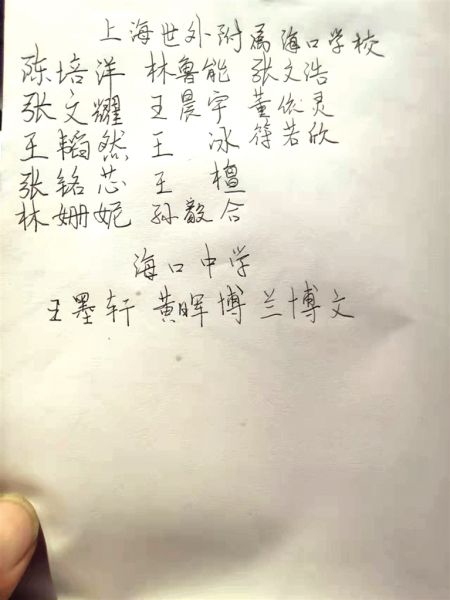 上海世外附属海口学校
陈培洋 林鲁能 张文浩
张文耀 王晨宇 董依灵
王韬然 王 冰 符若欣
张铭芯 王 檀
林姗妮 孙毅合
海口中学
王墨轩 黄晖博 兰博文